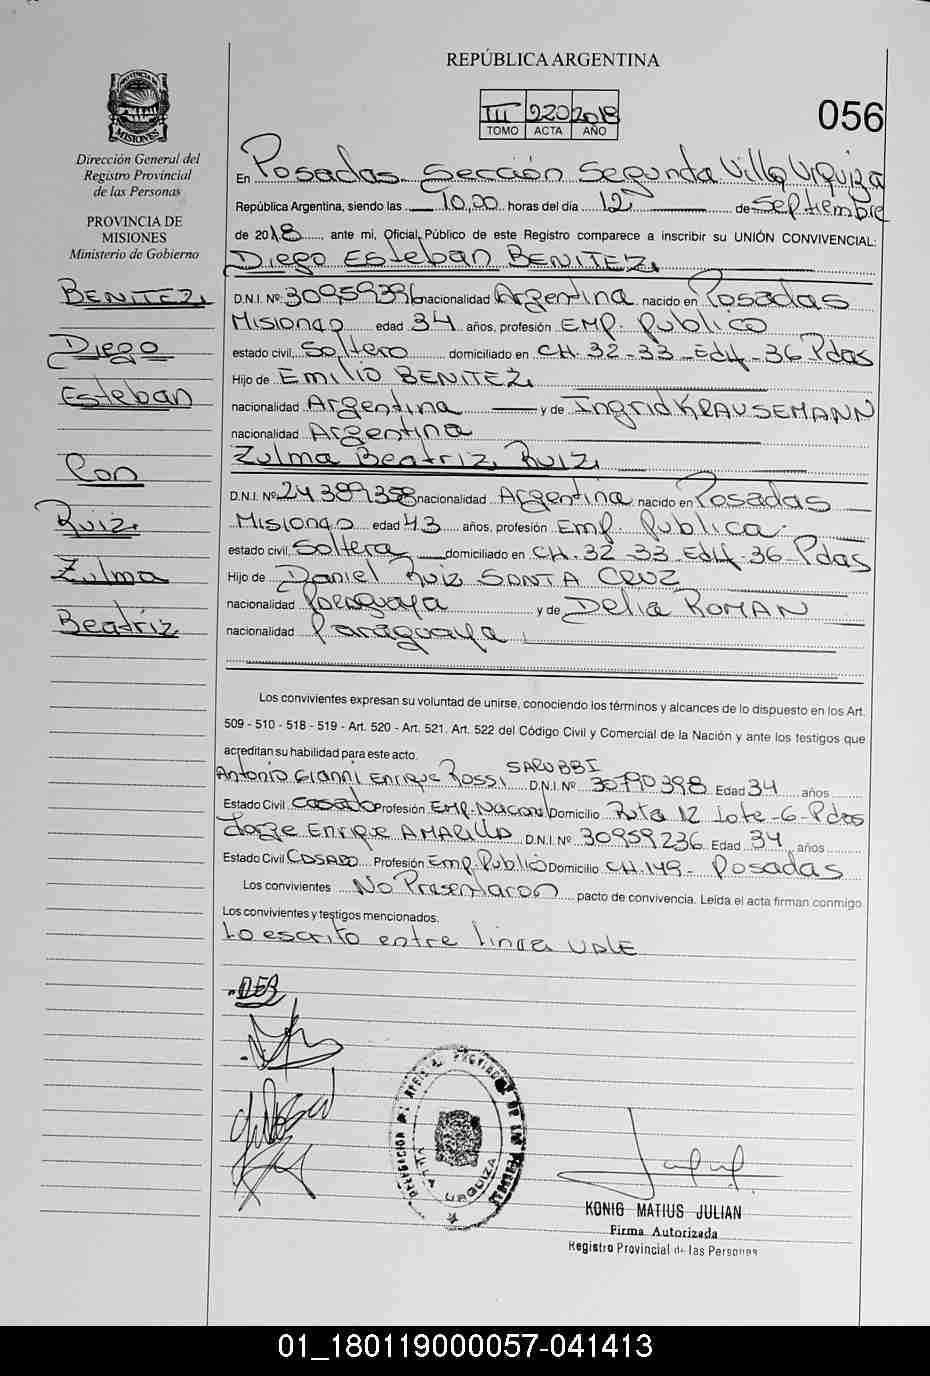 REPÚBLICA ARGENTINA
III 220 2018
TOMO ACTA AÑO
056
PROVINCIA DE
MISIONES
Dirección General del
Registro Provincial
de las Personas
PROVINCIA DE
MISIONES
Ministerio de Gobierno
BENITEZ
Diego
Esteban
Con
Ruiz
Zulma
Beatriz
En Posadas Sección Segunda Villa Urquiza
República Argentina, siendo las 10,00 horas del día 12 de Septiembre
de 2018, ante mi, Oficial Público de este Registro comparece a inscribir su UNIÓN CONVIVENCIAL:
Diego Esteban BENITEZ
D.N.I. Nº 30959396 nacionalidad Argentina nacido en Posadas
Misiones edad 34 años, profesión Emp. Publico
estado civil, Soltero domiciliado en CH. 32-33 Edif-36 Pdas
Hijo de Emilio BENITEZ
nacionalidad Argentina y de Ingrid KRAUSEMANN
nacionalidad Argentina
Zulma Beatriz Ruiz
D.N.I. Nº 24389358 nacionalidad Argentina nacido en Posadas
Misiones edad 43 años, profesión Emp. Publica
estado civil, Soltera domiciliado en CH. 32 33 Edif. 36 Pdas
Hijo de Daniel Ruiz SANTA CRUZ
nacionalidad Paraguaya y de Delia ROMAN
nacionalidad Paraguaya
Los convivientes expresan su voluntad de unirse, conociendo los términos y alcances de lo dispuesto en los Art.
509 - 510 - 518 - 519 - Art. 520 - Art. 521, Art. 522 del Código Civil y Comercial de la Nación y ante los testigos que
acreditan su habilidad para este acto.
SARUBBI
Antonio Gianni Enrique Rossi D.N.I. Nº 30790398 Edad 34 años
Estado Civil Casado Profesión Emp. Nacional Domicilio Ruta 12 Lote-6-Pdas
Jorge Enrique AMARILLO D.N.I. Nº 30959236 Edad 34 años
Estado Civil Casado Profesión Emp. Publico Domicilio CH. 149- Posadas
Los convivientes No Presentaron pacto de convivencia. Leída el acta firman conmigo
Los convivientes y testigos mencionados.
Lo escrito entre linea VALE
DEB
VILLA URQUIZA
KONIG MATIUS JULIAN
Firma Autorizada
Registro Provincial de las Personas
01_180119000057-041413